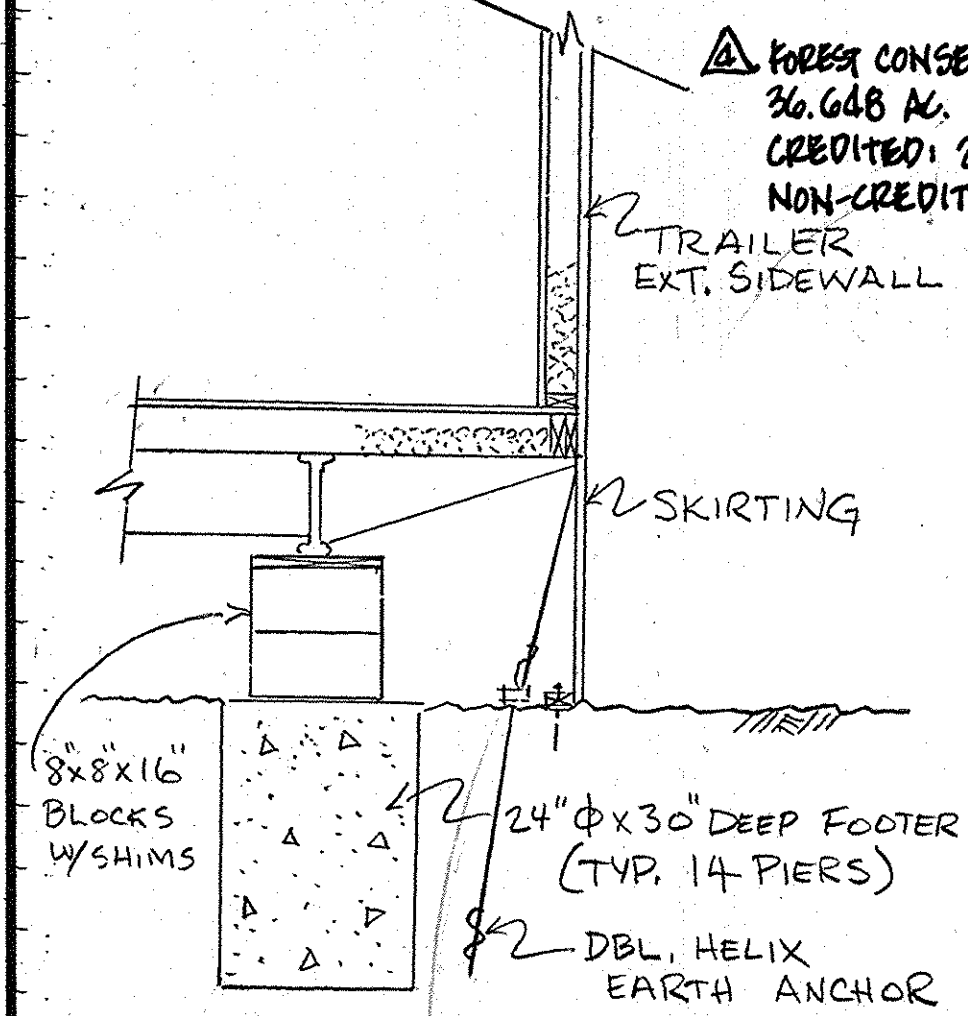 4 FOREST CONSE
36.648 AC.
CREDITED: 2
NON-CREDIT
TRAILER
EXT. SIDEWALL
SKIRTING
8"x8"x16"
BLOCKS
W/SHIMS
24"ϕx30" DEEP FOOTER
(TYP. 14 PIERS)
DBL. HELIX
EARTH ANCHOR